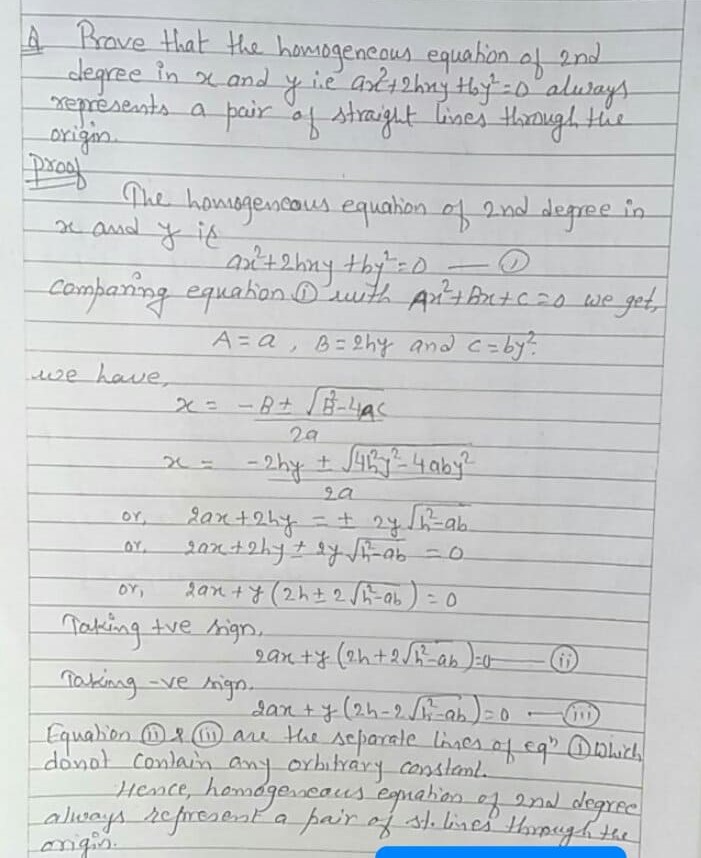 Q Prove that the homogeneous equation of 2nd
degree in x and y i.e ax²+2hxy+by²=0 always
represents a pair of straight lines through the
origin.
Proof
The homogeneous equation of 2nd degree in
x and y is
ax²+2hxy+by²=0 — ①
Comparing equation ① with Ax²+Bx+C=0 we get,
A=a, B=2hy and C=by².
we have,
x = -B ± √B²-4AC
2a
x = -2hy ± √4h²y²-4aby²
2a
or, 2ax+2hy = ± 2y√h²-ab
or, 2ax+2hy ± 2y√h²-ab = 0
or, 2ax+y(2h±2√h²-ab) = 0
Taking +ve sign,
2ax+y(2h+2√h²-ab)=0 — ⓘⓘ
Taking -ve sign,
2ax+y(2h-2√h²-ab)=0 — ⓘⓘⓘ
Equation ⓘⓘ & ⓘⓘⓘ are the separate lines of eqⁿ ① which
donot contain any orbitrary constant.
Hence, homogeneous equation of 2nd degree
always represent a pair of st. lines through the
origin.